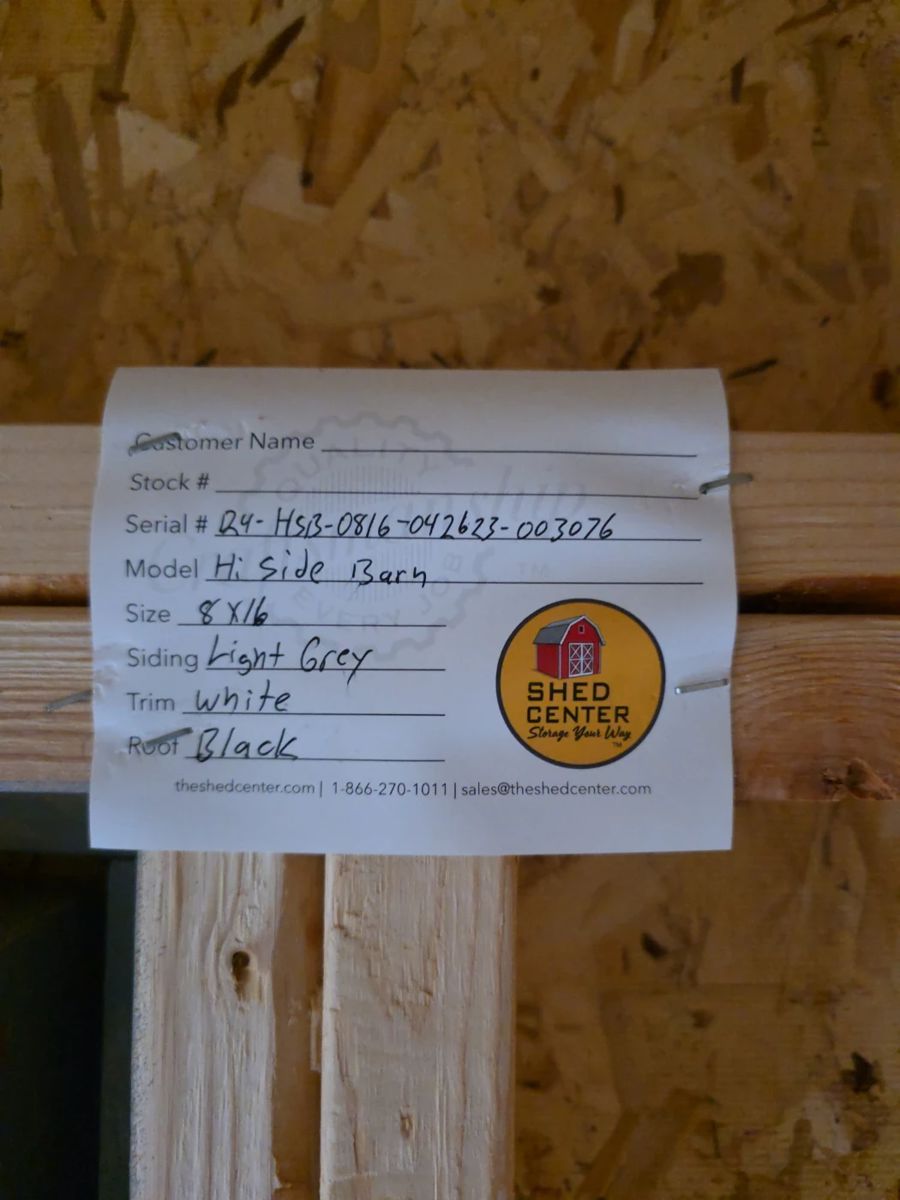 Customer Name
Stock #
Serial # R4-HSB-0816-042623-003076
Model Hi Side Barn
Size 8X16
Siding Light Grey
Trim White
Roof Black
SHED
CENTER
Storage Your Way
TM
theshedcenter.com | 1-866-270-1011 | sales@theshedcenter.com
QUALITY
Craftsmanship
TM
EVERY JOB